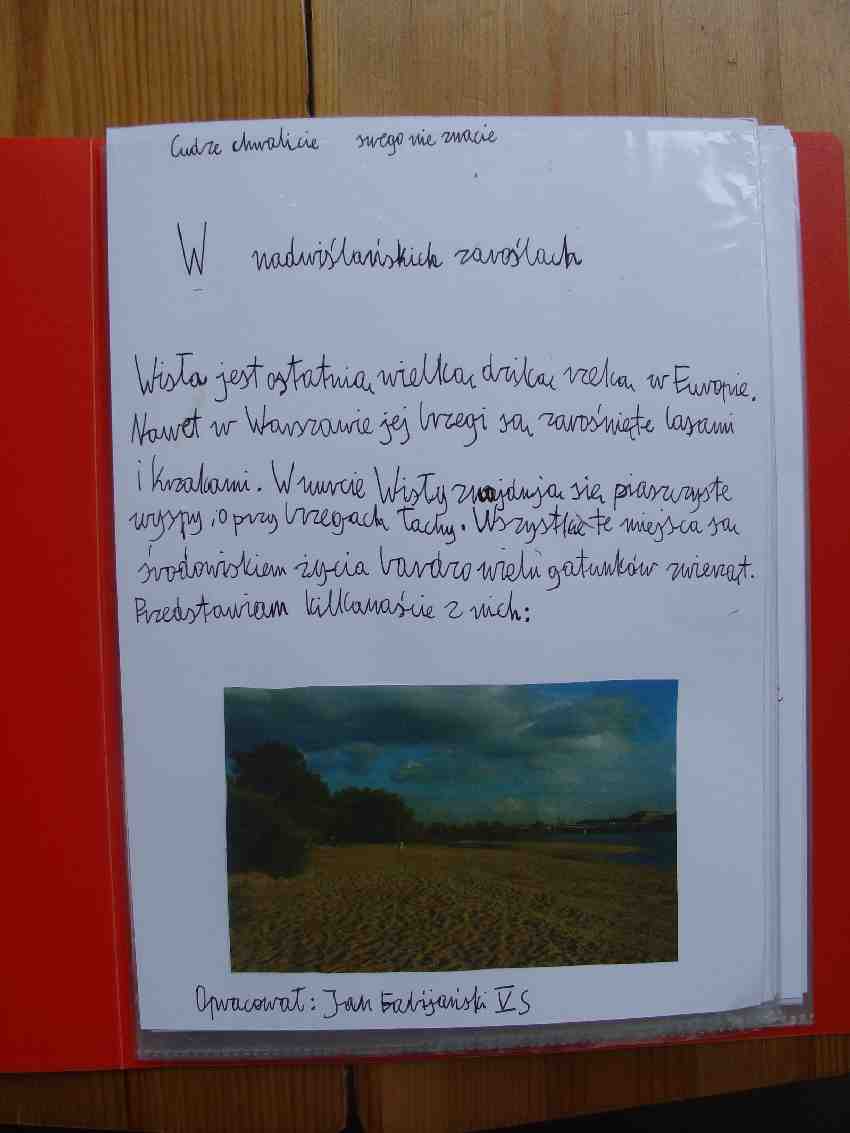 Cudze chwalicie swego nie znacie
W nadwiślańskich zaroślach
Wisła jest ostatnią wielką dziką rzeką w Europie.
Nawet w Warszawie jej brzegi są zarośnięte lasami
i krzakami. W nurcie Wisły znajdują się piaszczyste
wyspy, a przy brzegach łachy. Wszystkie te miejsca są
środowiskiem życia bardzo wielu gatunków zwierząt.
Przedstawiam kilkanaście z nich:
Opracował: Jan V S